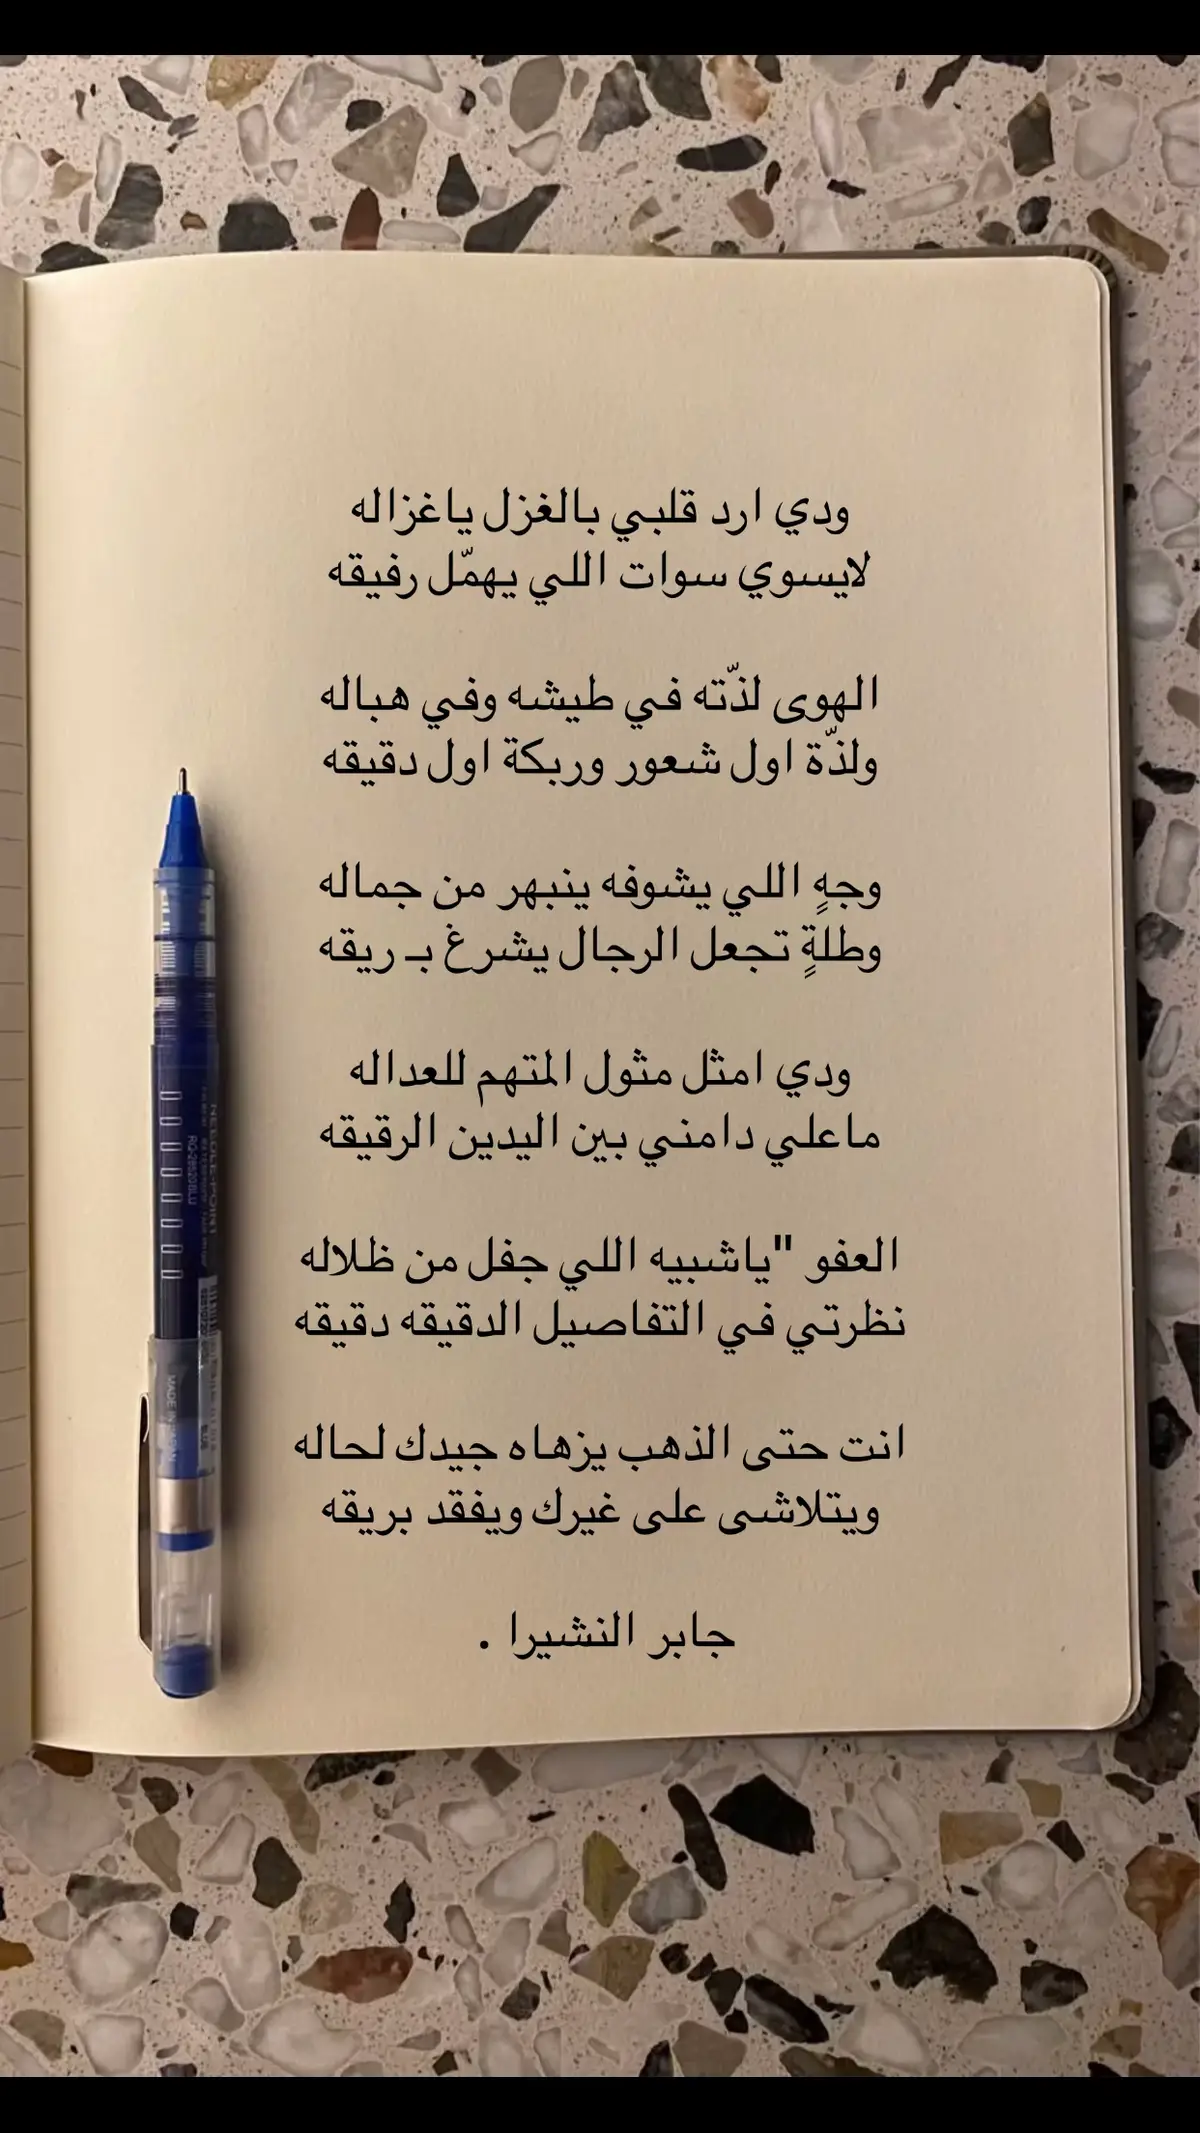 ودي ارد قلبي بالغزل ياغزاله
لايسوي سوات اللي يهمّل رفيقه
الهوى لذّته في طيشه وفي هباله
ولذّة اول شعور وربكة اول دقيقه
وجهٍ اللي يشوفه ينبهر من جماله
وطلةٍ تجعل الرجال يشرغ بـ ريقه
ودي امثل مثول المتهم للعداله
ماعلي دامني بين اليدين الرقيقه
العفو "ياشبيه اللي جفل من ظلاله
نظرتي في التفاصيل الدقيقه دقيقه
انت حتى الذهب يزهاه جيدك لحاله
ويتلاشى على غيرك ويفقد بريقه
جابر النشيرا .
NEEDLE-POINT
MADE IN
BLUE